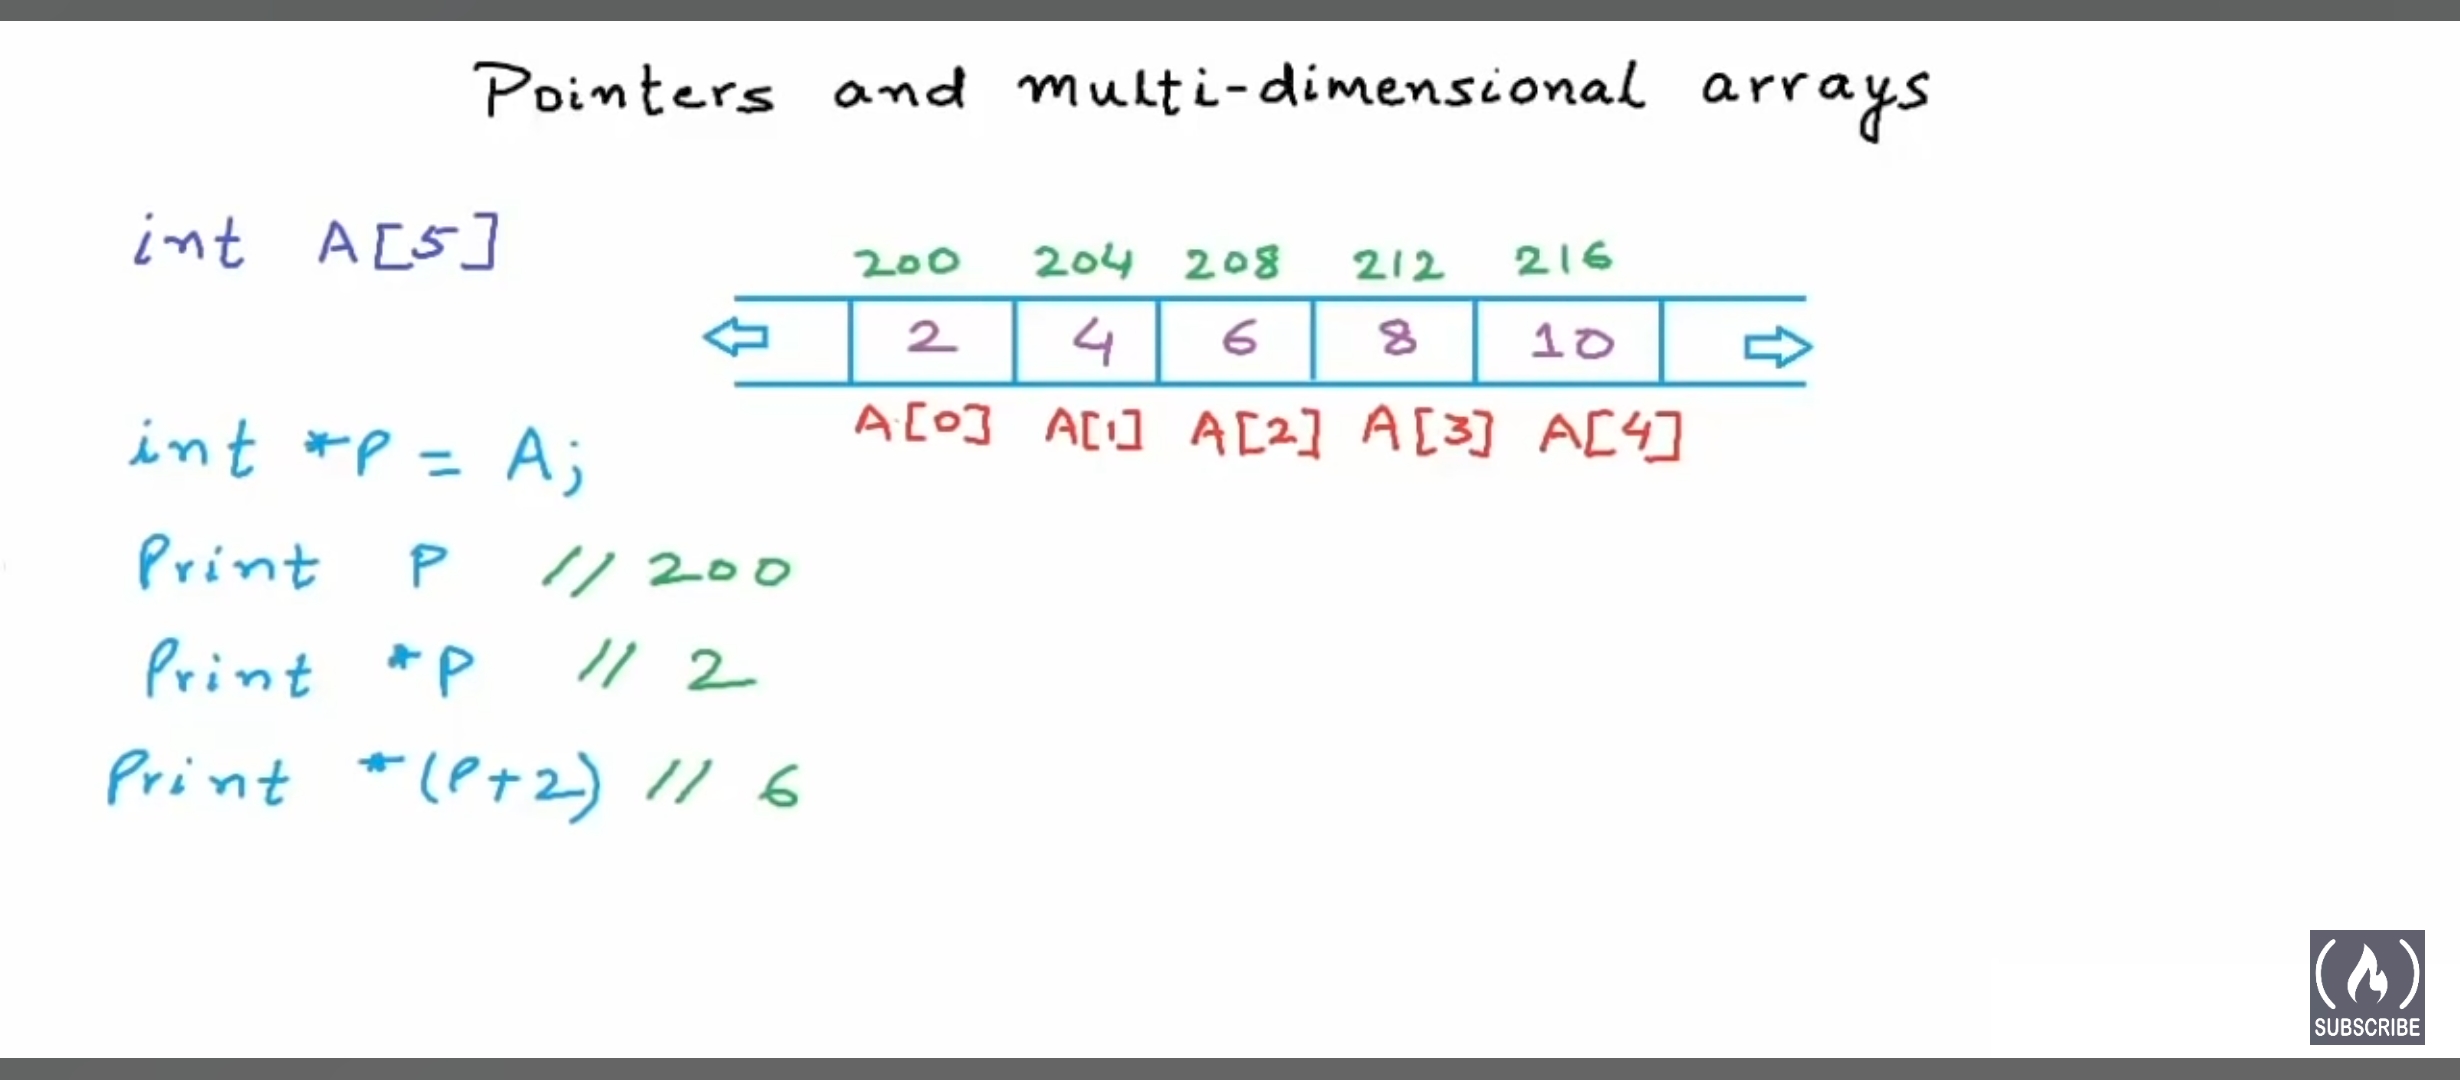 Pointers and multi-dimensional arrays
int A[5]
200 204 208 212 216
2 4 6 8 10
A[0] A[1] A[2] A[3] A[4]
int *P = A;
Print P // 200
Print *P // 2
Print *(P+2) // 6
SUBSCRIBE